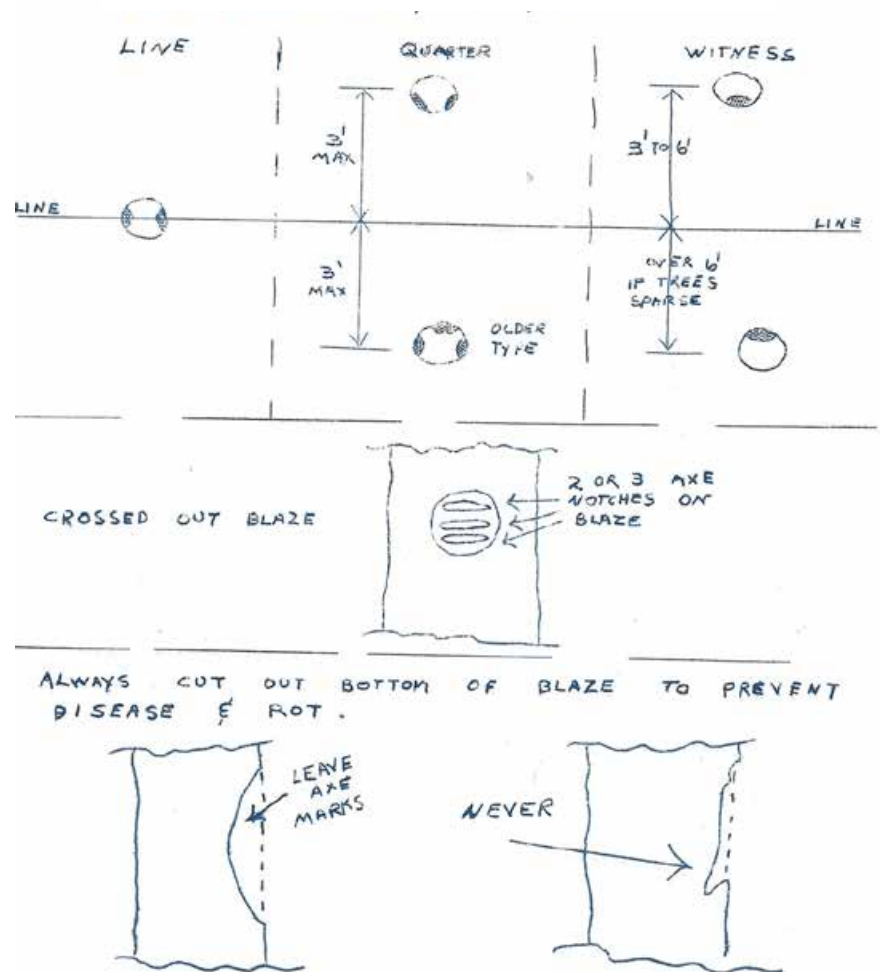 LINE
QUARTER
WITNESS
3'
MAX
3' TO 6'
LINE
LINE
3'
MAX
OVER 6'
IF TREES
SPARSE
OLDER
TYPE
CROSSED OUT BLAZE
2 OR 3 AXE
NOTCHES ON
BLAZE
ALWAYS CUT OUT BOTTOM OF BLAZE TO PREVENT
DISEASE & ROT.
LEAVE
AXE
MARKS
NEVER